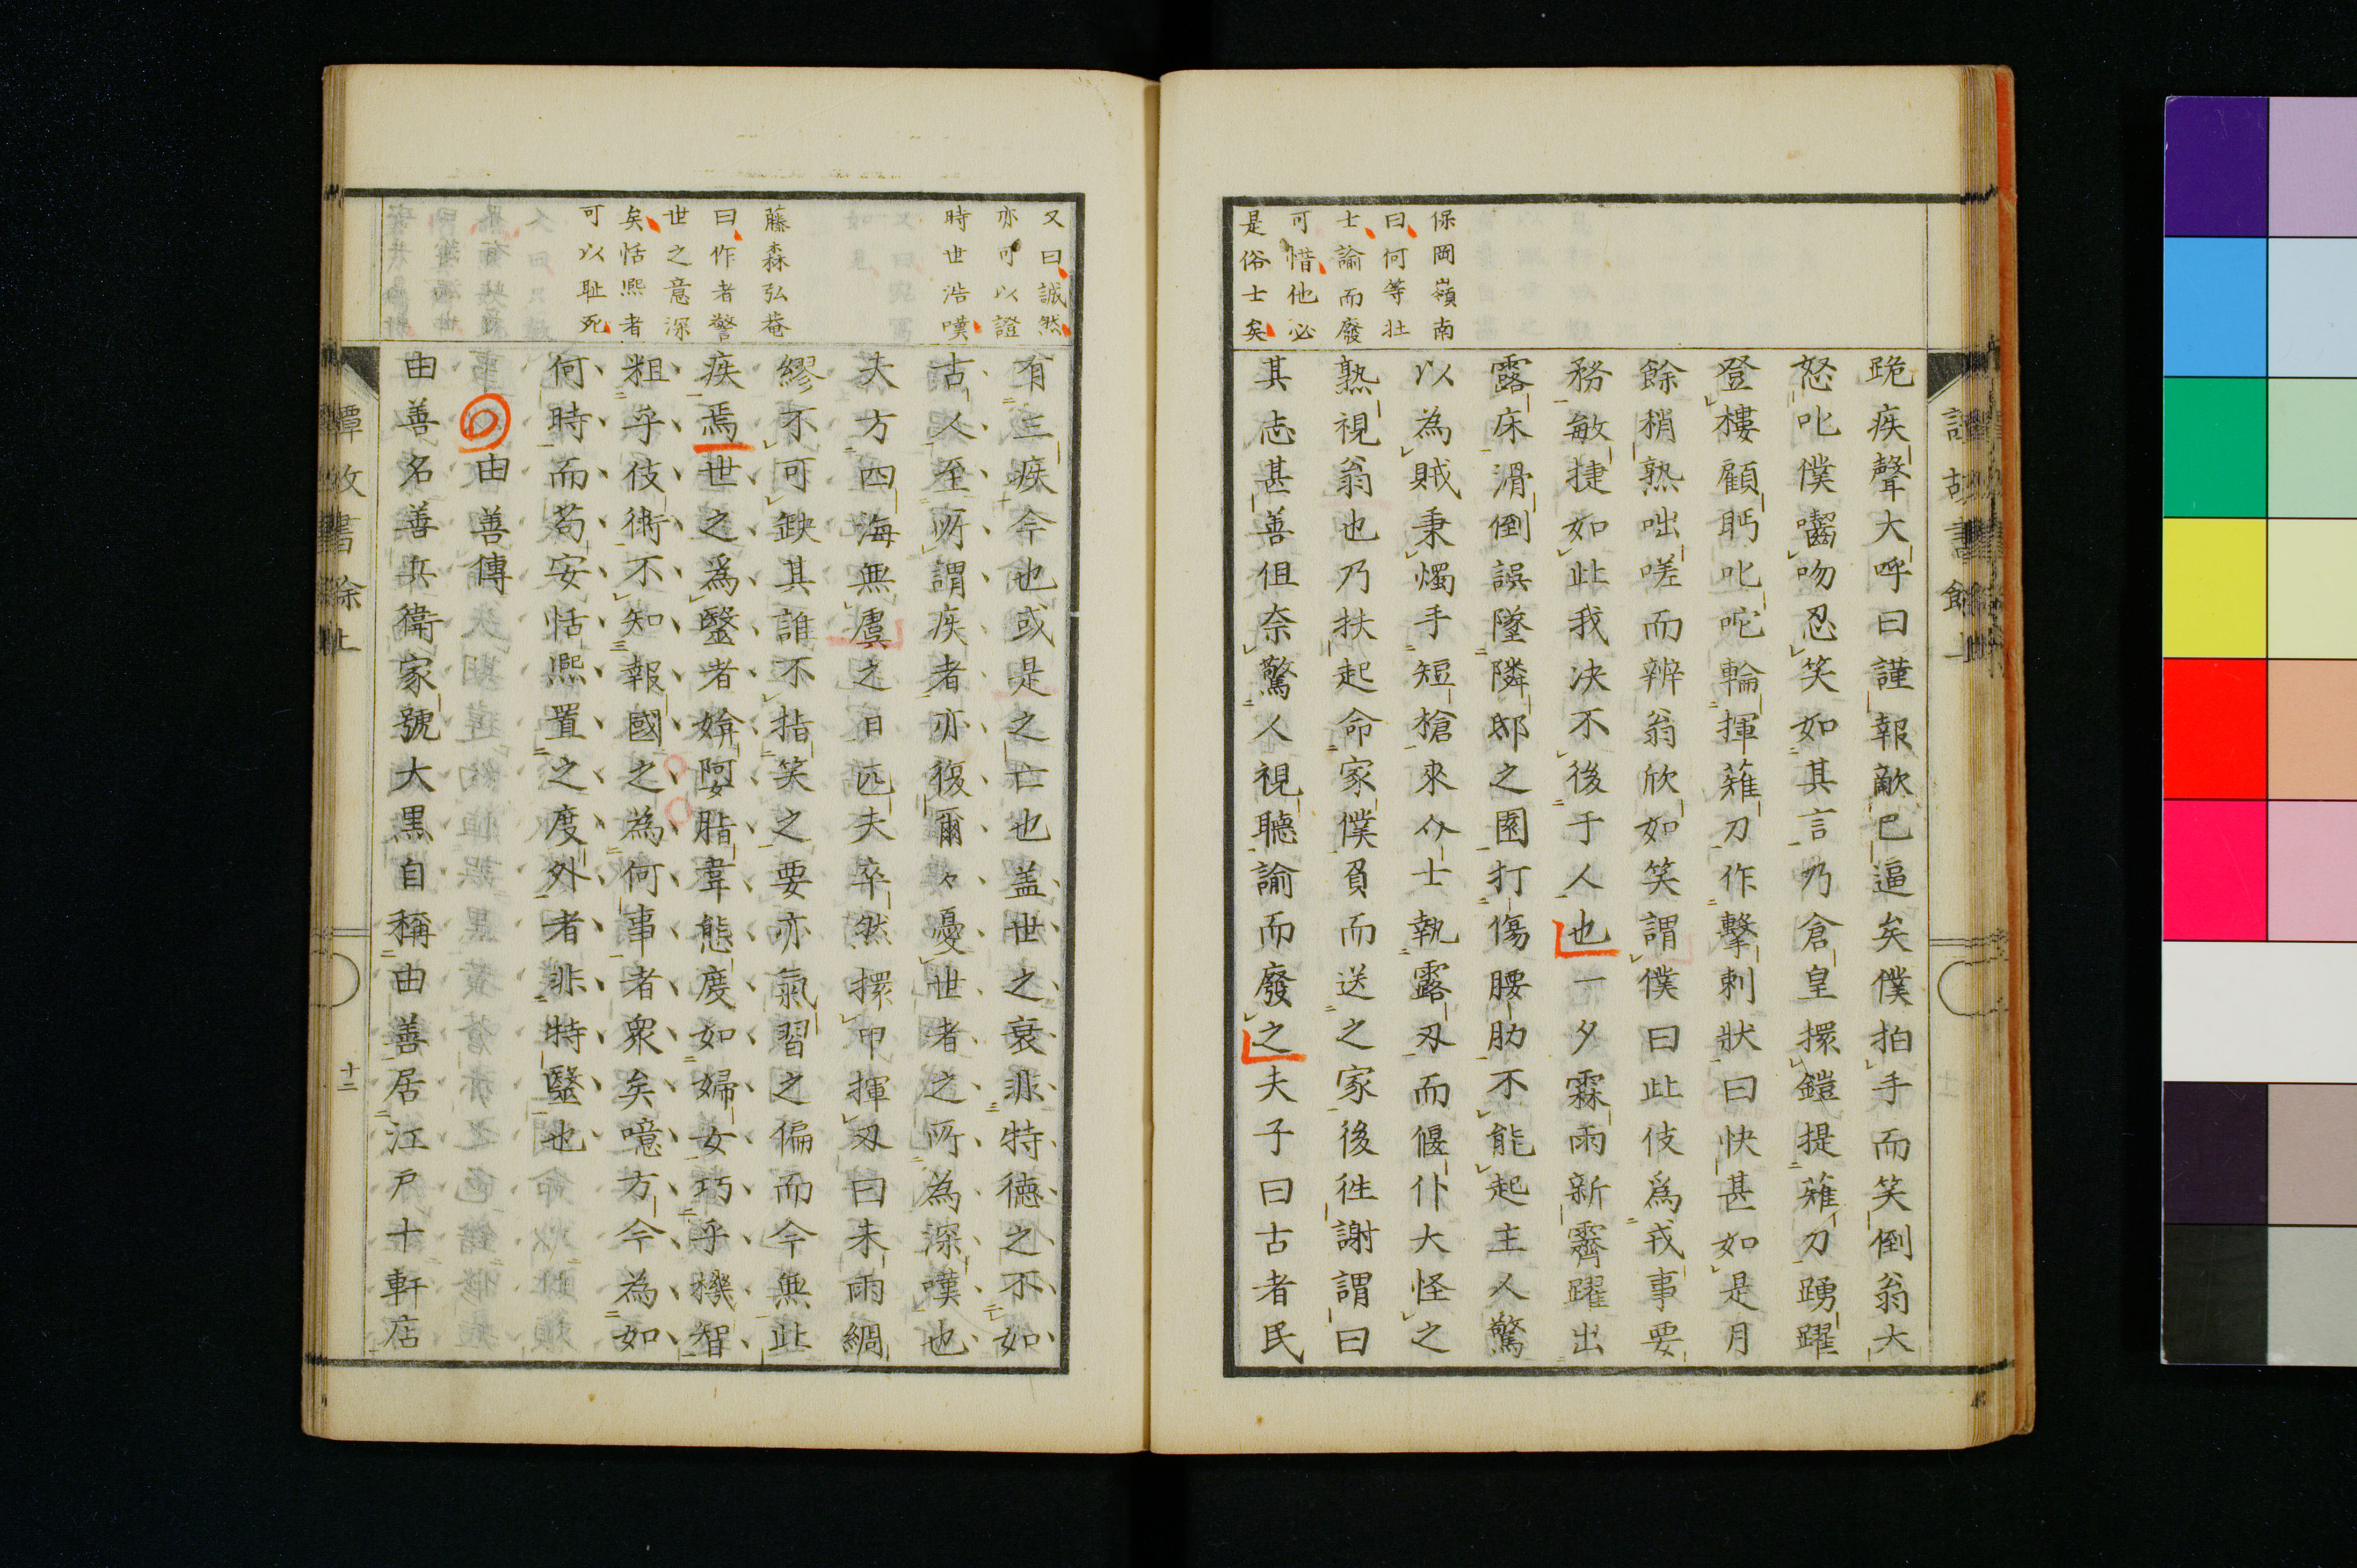 保岡嶺南
曰何等壮
士諭而廢
可惜他必
是俗士矣
跪疾聲大呼曰謹報敵已逼矣僕拍手而笑倒翁大
怒叱僕囓吻忍笑如其言乃倉皇擐鎧提薙刀踴躍
登樓顧眄叱咜輪揮薙刀作擊刺狀曰快甚如是月
餘稍熟咄嗟而辨翁欣如笑謂僕曰此伎爲戎事要
務敏捷如此我决不後于人也一夕霖雨新霽躍出
露床滑倒誤墜隣邸之園打傷腰肋不能起主人驚
以為賊秉燭手短槍來介士執露刃而偃仆大怪之
熟視翁也乃扶起命家僕負而送之家後往謝謂曰
其志甚善但奈驚人視聽諭而廢之夫子曰古者民
又曰誠然
亦可以證
時世浩嘆
藤森弘菴
曰作者警
世之意深
矣恬熙者
可以耻死
有三疾今也或是之亡也盖世之衰非特徳之不如
古人至所謂疾者亦復爾々憂世者之所為深嘆也
夫方四海無虞之日匹夫卒然擐甲揮刃曰未雨綢
繆不可缺其誰不指笑之要亦氣習之偏而今無此
疾焉世之爲毉者媕婀脂韋態度如婦女巧乎機智
粗乎伎術不知報國之為何事者衆矣噫方今為如
何時而苟安恬熙置之度外者非特毉也
由善傳
由善名善兵衛家號大黒自稱由善居江戸十軒店
譚故書餘上
十二